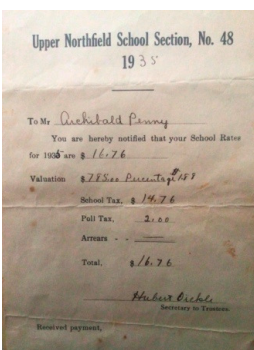 Upper Northfield School Section, No. 48
1935
To Mr Archibald Penny
You are hereby notified that your School Rates
for 1935 are $ 16.76
Valuation $785.00 Percentage $1.88
School Tax, $ 14.76
Pull Tax, 2.00
Arrears - -
Total, $16.76
Hubert
Secretary to Trustees
Received payment,